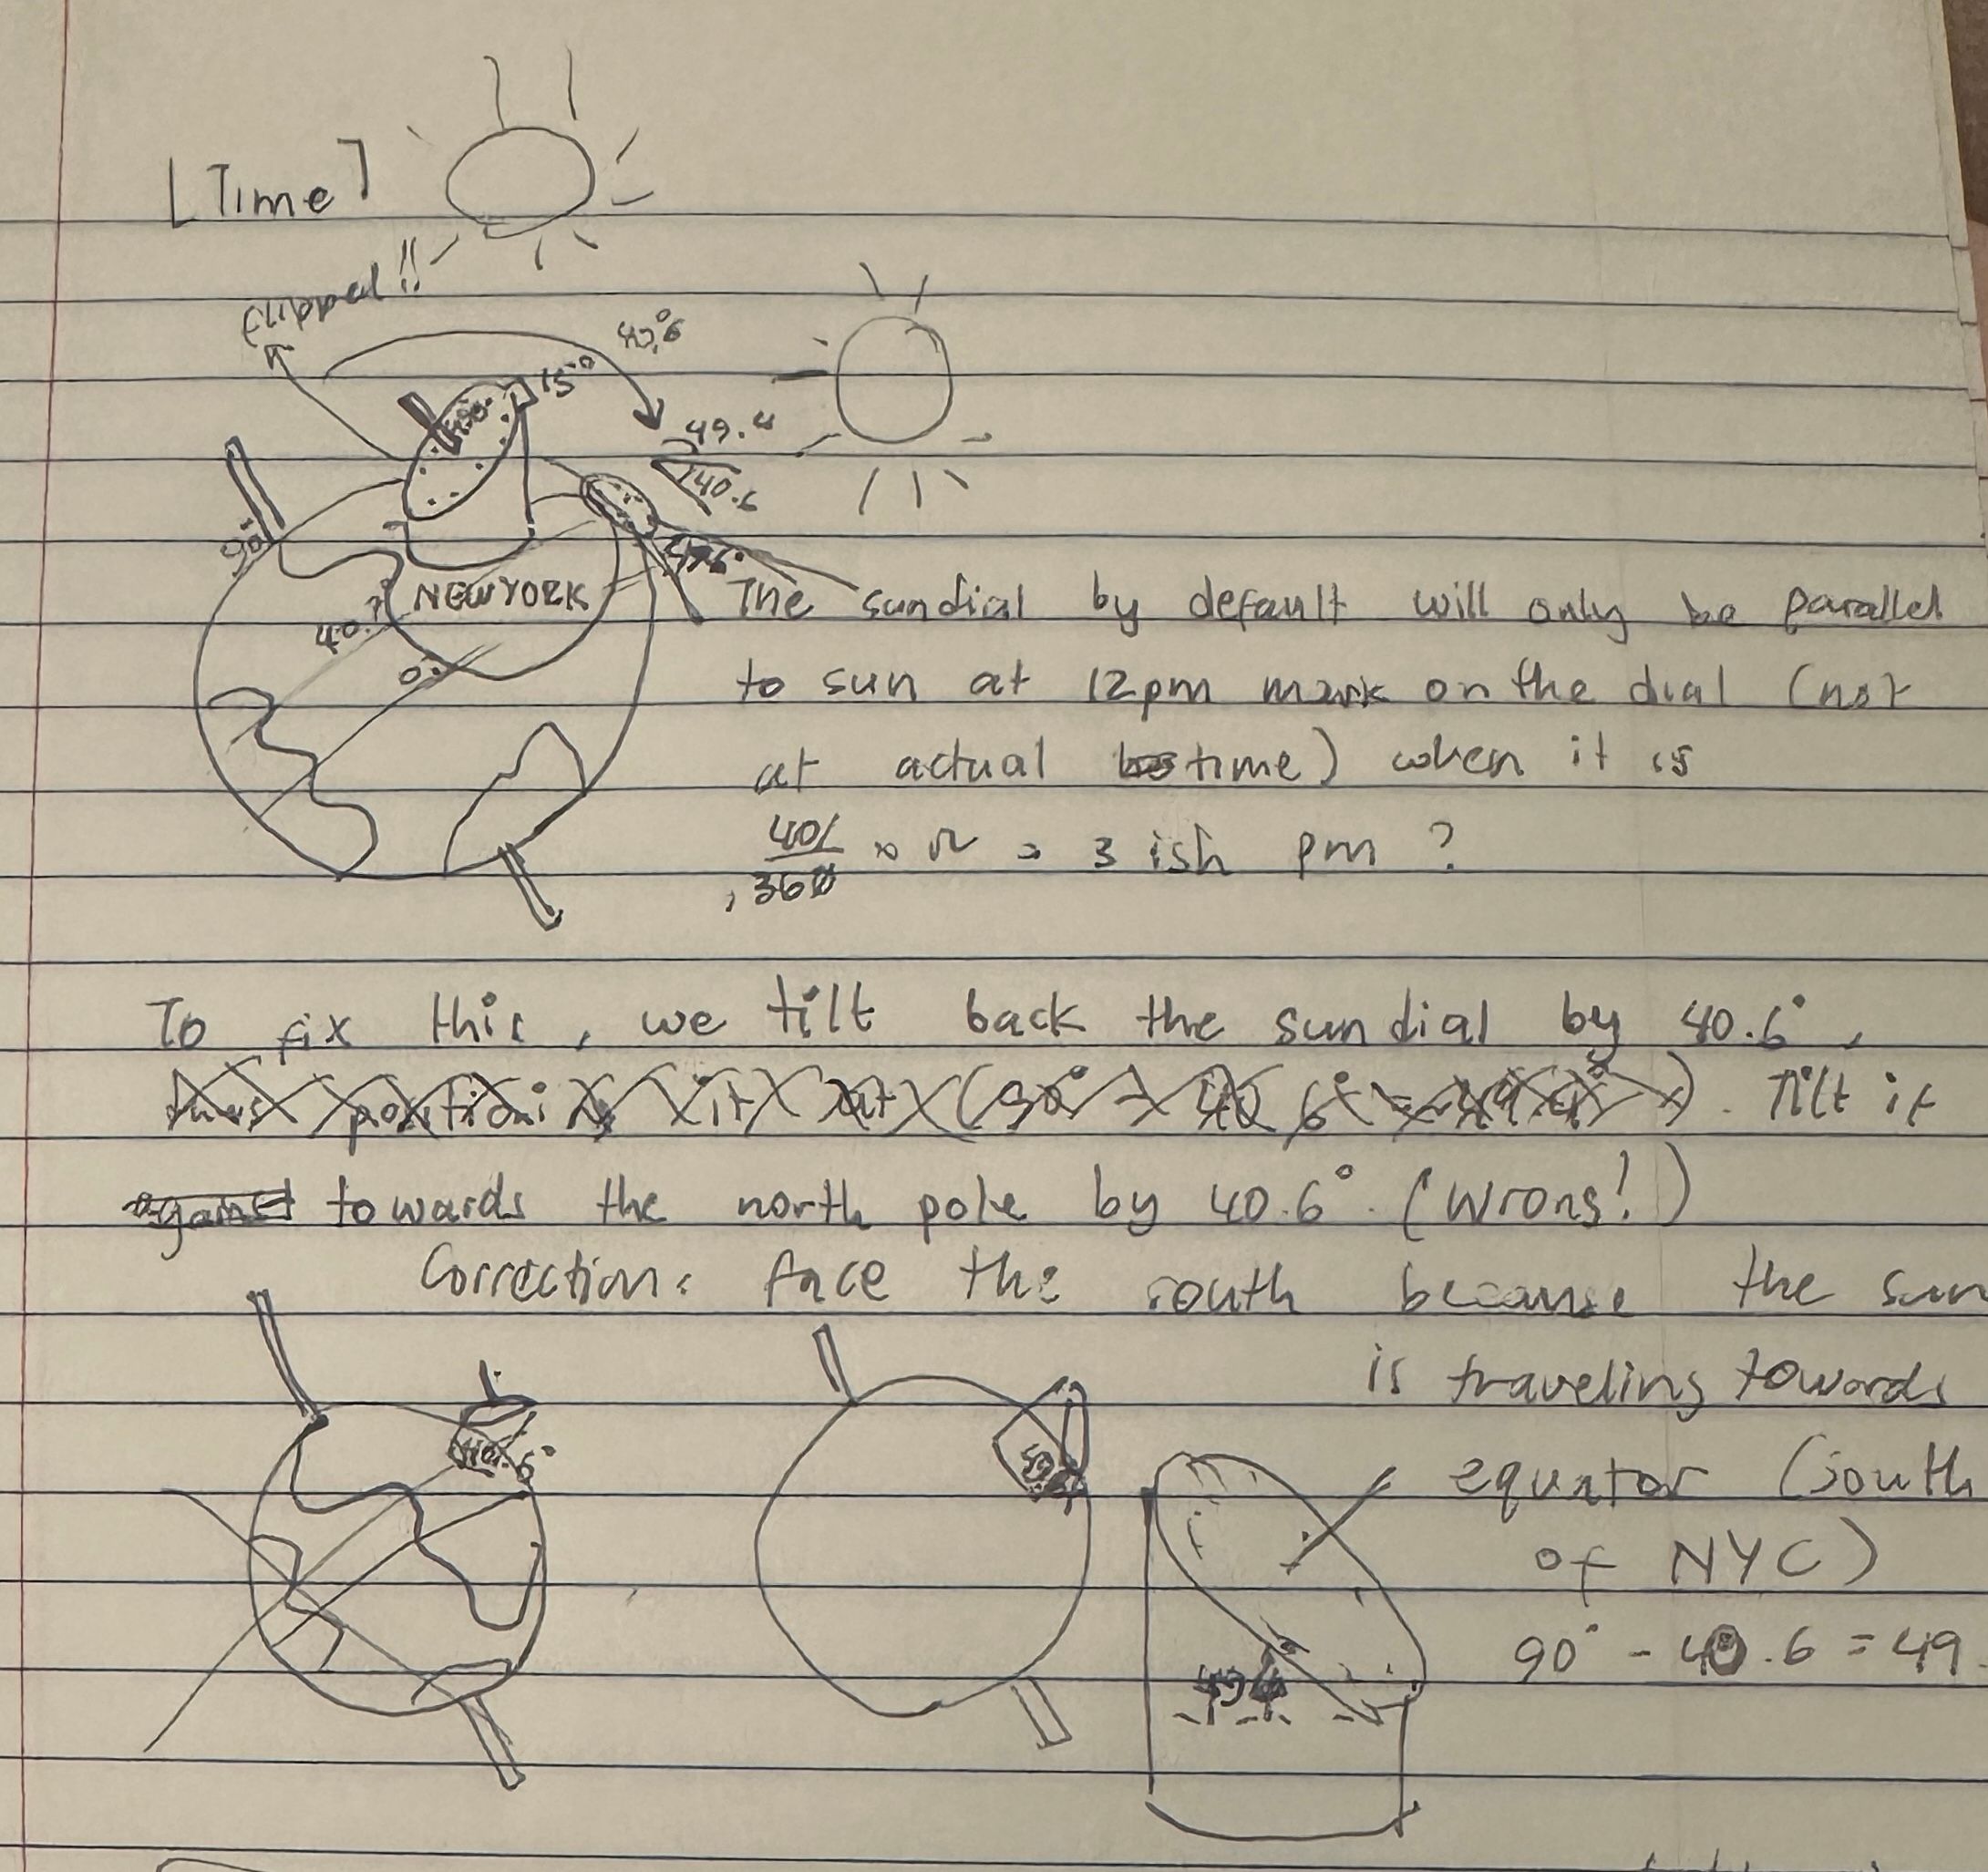 [Time]
flipped!!
15°
49.4
40.6
90°
NEWYORK
0°
The sundial by default will only be parallel
to sun at 12pm mark on the dial (not
at actual time) when it is
= 3 ish pm ?
To fix this, we tilt back the sundial by 40.6°,
thus positioning it at (90° - 40.6° = 49.4°). Tilt it
against towards the north pole by 40.6°. (wrong!)
Correction: face the south because the sun
is traveling towards
40.6°
equator (south
of NYC)
90° - 40.6 = 49.